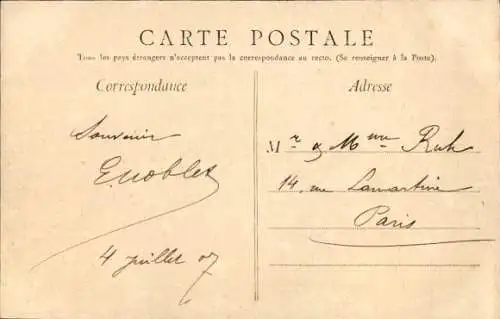 CARTE POSTALE
Tous les pays étrangers n'acceptent pas la correspondance au recto. (Se renseigner à la Poste).
Correspondance
Adresse
Souvenir
E. Noblet
4 juillet 07
Mr & Mme Ruh
14, rue Lamartine
Paris